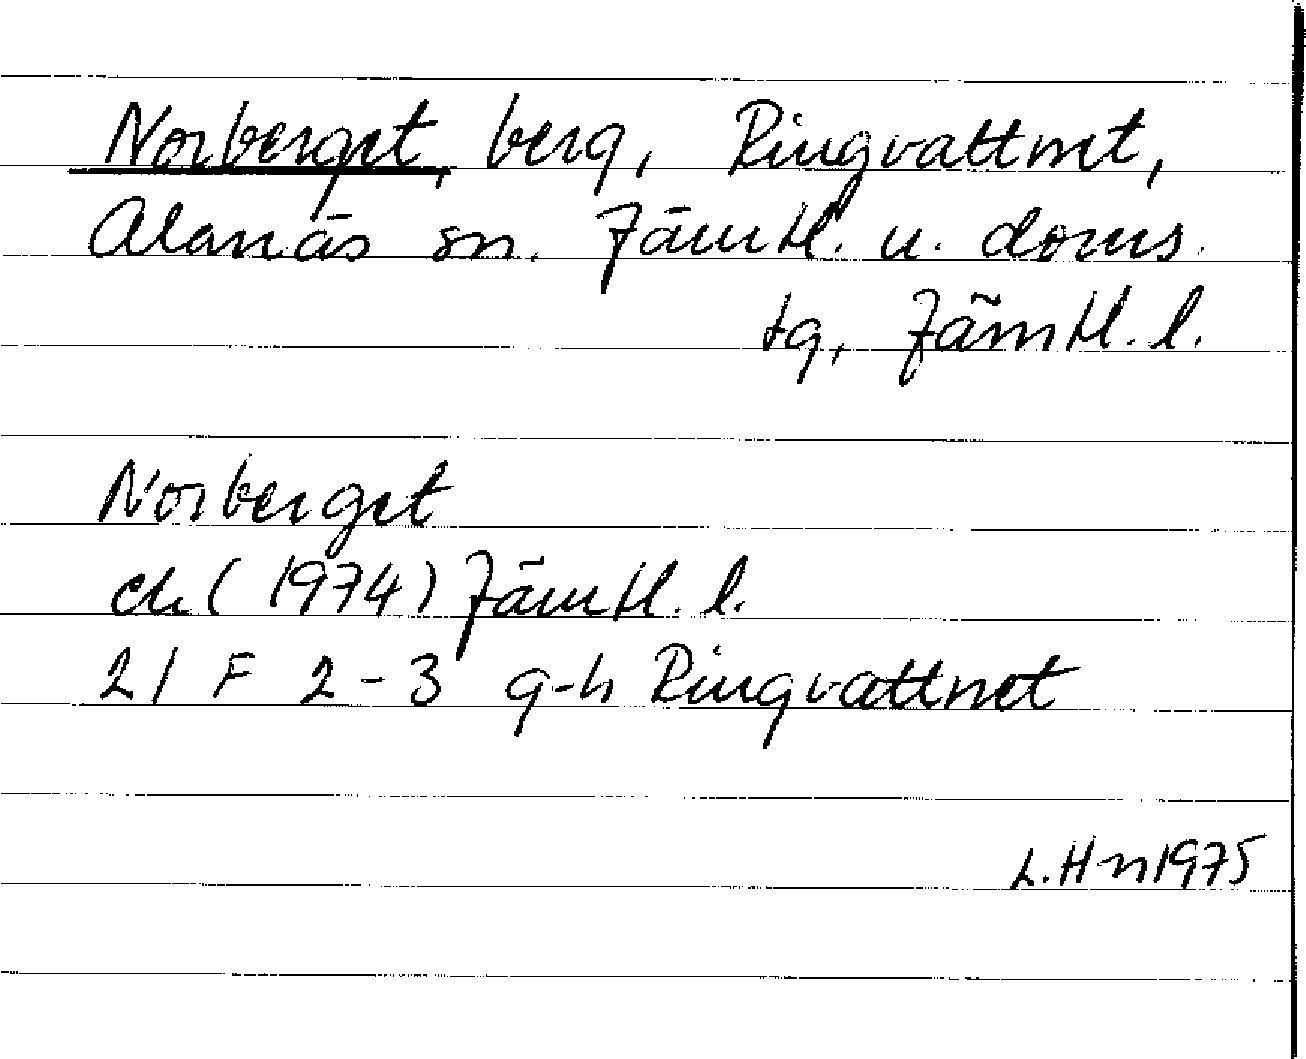 Norberget, berg, Ringvattnet,
Alanäs sn. Jämtl. n. doms.
tg, Jämtl. l.
Norberget
ek (1974) Jämtl. l.
21 F 2-3 g-h Ringvattnet
L.Hn 1975